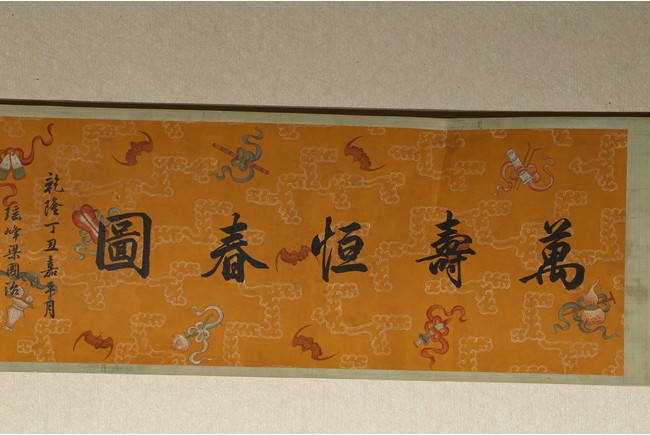 萬壽恒春圖
乾隆丁丑嘉平月
瑶峰梁國治